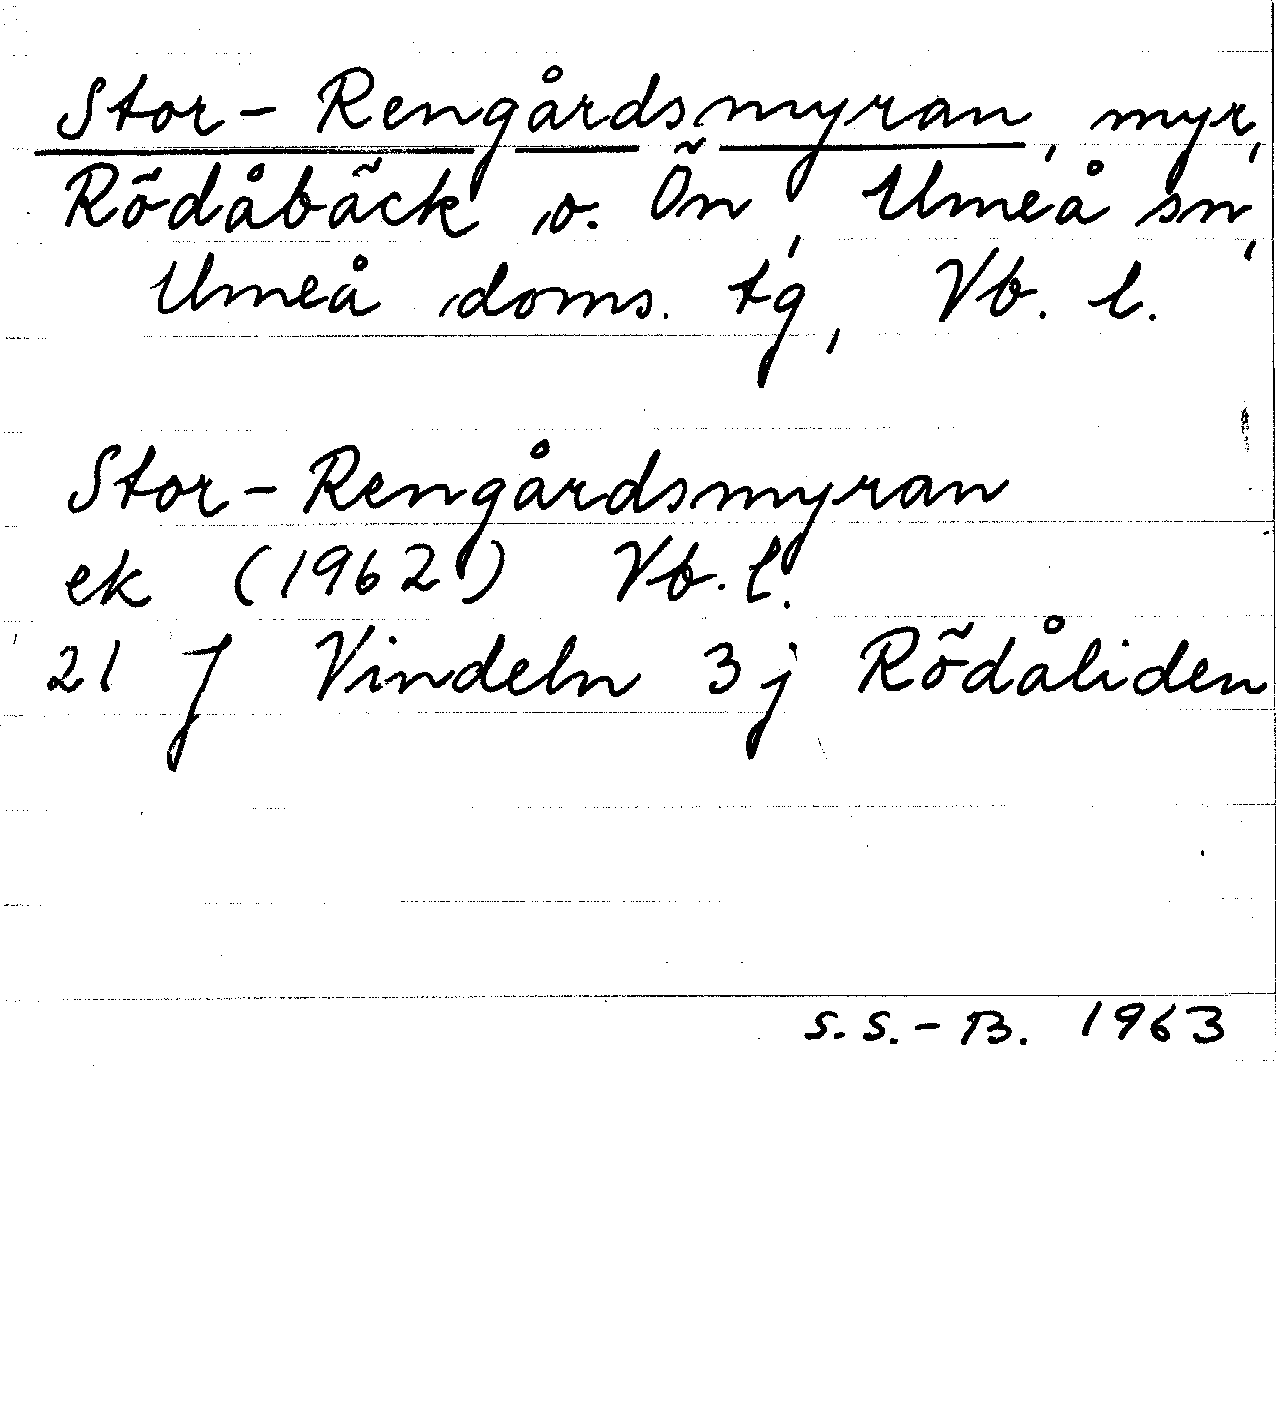 Stor-Rengårdsmyran, myr,
Rödåbäck o. Ön, Umeå sn,
Umeå doms. tg, Vb. l.
Stor-Rengårdsmyran
ek (1962) Vb. l.
21 J Vindeln 3 j Rödåliden
S. S.-B. 1963